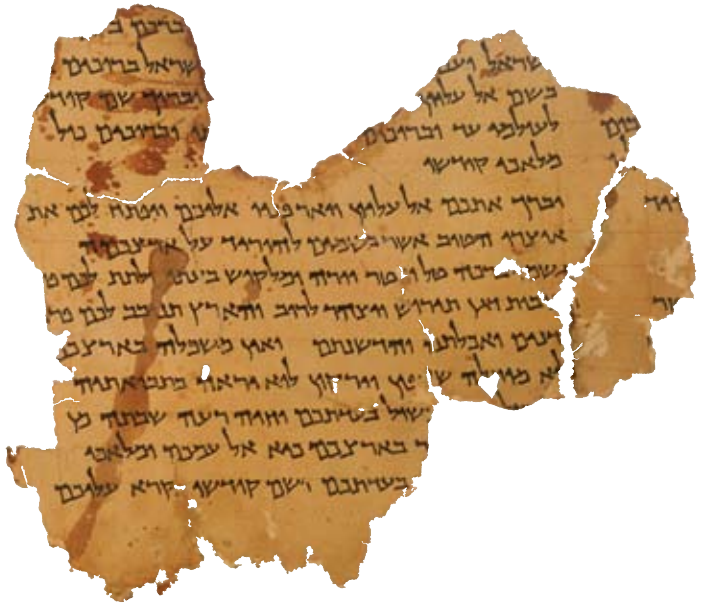 ברכם
שראל וע שראל ברוכים
בשם אל עליון וברוך שם קוד
לעולמי עד וברוכים וברוכים כול
מלאכי קודשו
יברך אתכם אל עליון ויאר פניו אליכם ויפתח לכם את
אוצרו הטוב אשר בשמים להוריד על ארצכם
גשמי ברכה טל ומטר יורה ומלקוש בעתו ולתת לכם
בות דגן תירוש ויצהר לרוב והארץ תנובב לכם פר
דנים ואכלתם והדשנתם ואין משכלה בארצכ
לא מוחלה שדפון וירקון לוא יראה בתבואתיה
ישול בעדתכם וחיה רעה שבתה מן
בארצכם כיא אל עמכם ומלאכי
בעדתכם ושם קודשו קרא עליכם